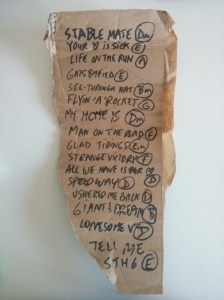 STABLE MATE Dm
YOUR ♡ IS SICK E
LIFE ON THE RUN A
GATSBYFIED E
SEE-THROUGH HAT Bm
FLYIN' A ROCKET G
MY HOME IS Dm
MAN ON THE ROAD E
GLAD TIDINGS Em
STRANGE VICTORY F
ALL WE HAVE IS D
SPEEDWAY D
USHERED ME BACK D
GIANTS
LONESOME V D
TELL ME
STH6 E